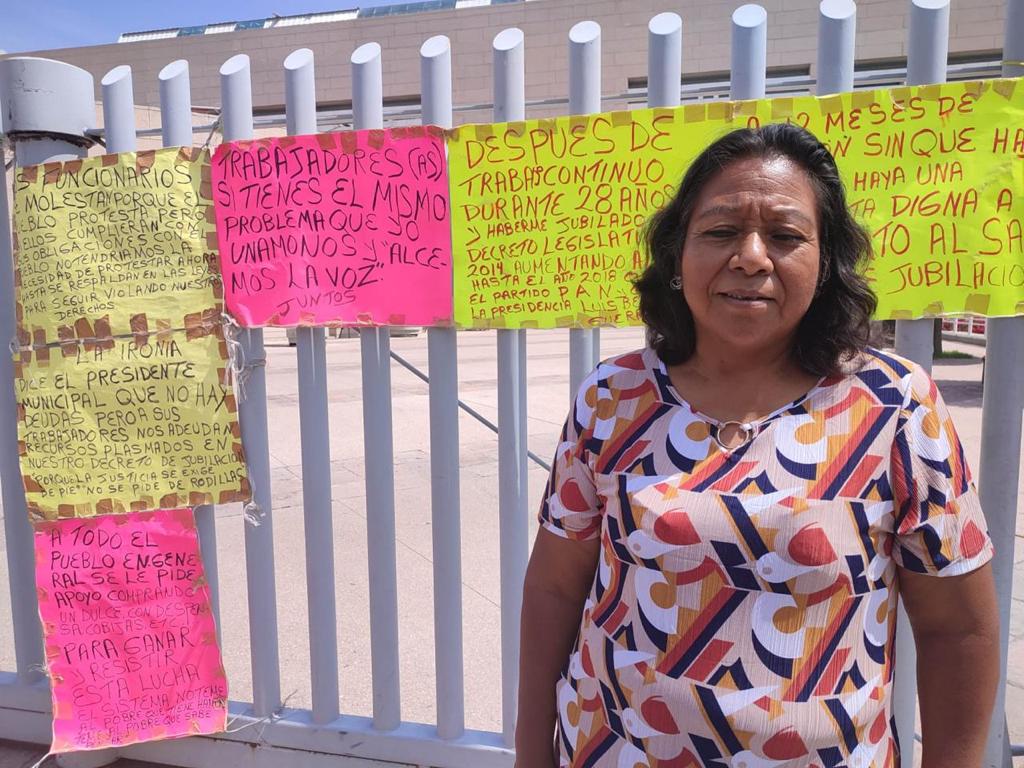 S FUNCIONARIOS
MOLESTAN PORQUE EL
BLO PROTESTA, PERO
ELLOS CUMPLIERAN CON
S OBLIGACIONES COMO
EBLO NO TENDRIAMOS LA
CESIDAD DE PROTESTAR AHORA
HASTA SE RESPALDAN EN LAS LEYES
PARA SEGUIR VIOLANDO NUESTROS
DERECHOS
LA IRONIA
DICE EL PRESIDENTE
MUNICIPAL QUE NO HAY
DEUDAS PERO A SUS
TRABAJADORES NOS ADEUDAN
RECURSOS PLASMADOS EN
NUESTRO DECRETO DE JUBILACIO
"PORQUE LA JUSTICIA SE EXIGE
DE PIE" NO SE PIDE DE RODILLAS
"A TODO EL
PUEBLO EN GENE
RAL SE LE PIDE
APOYO COMPRANDO
UN DULCE CON DESPEN
SA COBIJAS ETC."
PARA GANAR
Y RESISTIR
ESTA LUCHA
EL SISTEMA NO TEME
AL POBRE QUE TIENE HAMBRE
TEME AL POBRE QUE SABE
TRABAJADORES (AS)
SI TIENES EL MISMO
PROBLEMA QUE YO
UNAMONOS Y "ALCE-
MOS LA VOZ".
JUNTOS
DESPUES DE
TRABAJO CONTINUO
DURANTE 28 AÑOS
Y HABERME JUBILADO
DECRETO LEGISLAT
2014, AUMENTANDO A
HASTA EL AÑO 2018
EL PARTIDO PAN
LA PRESIDENCIA LUIS B
GUERR
A 12 MESES DE
ÓN SIN QUE HA
HAYA UNA
TA DIGNA A
TO AL SA
JUBILACIO